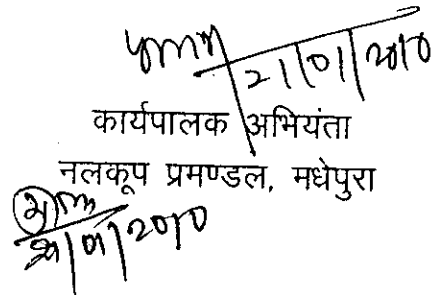 21/01/2010
कार्यपालक अभियंता
नलकूप प्रमण्डल, मधेपुरा
21/01/2010